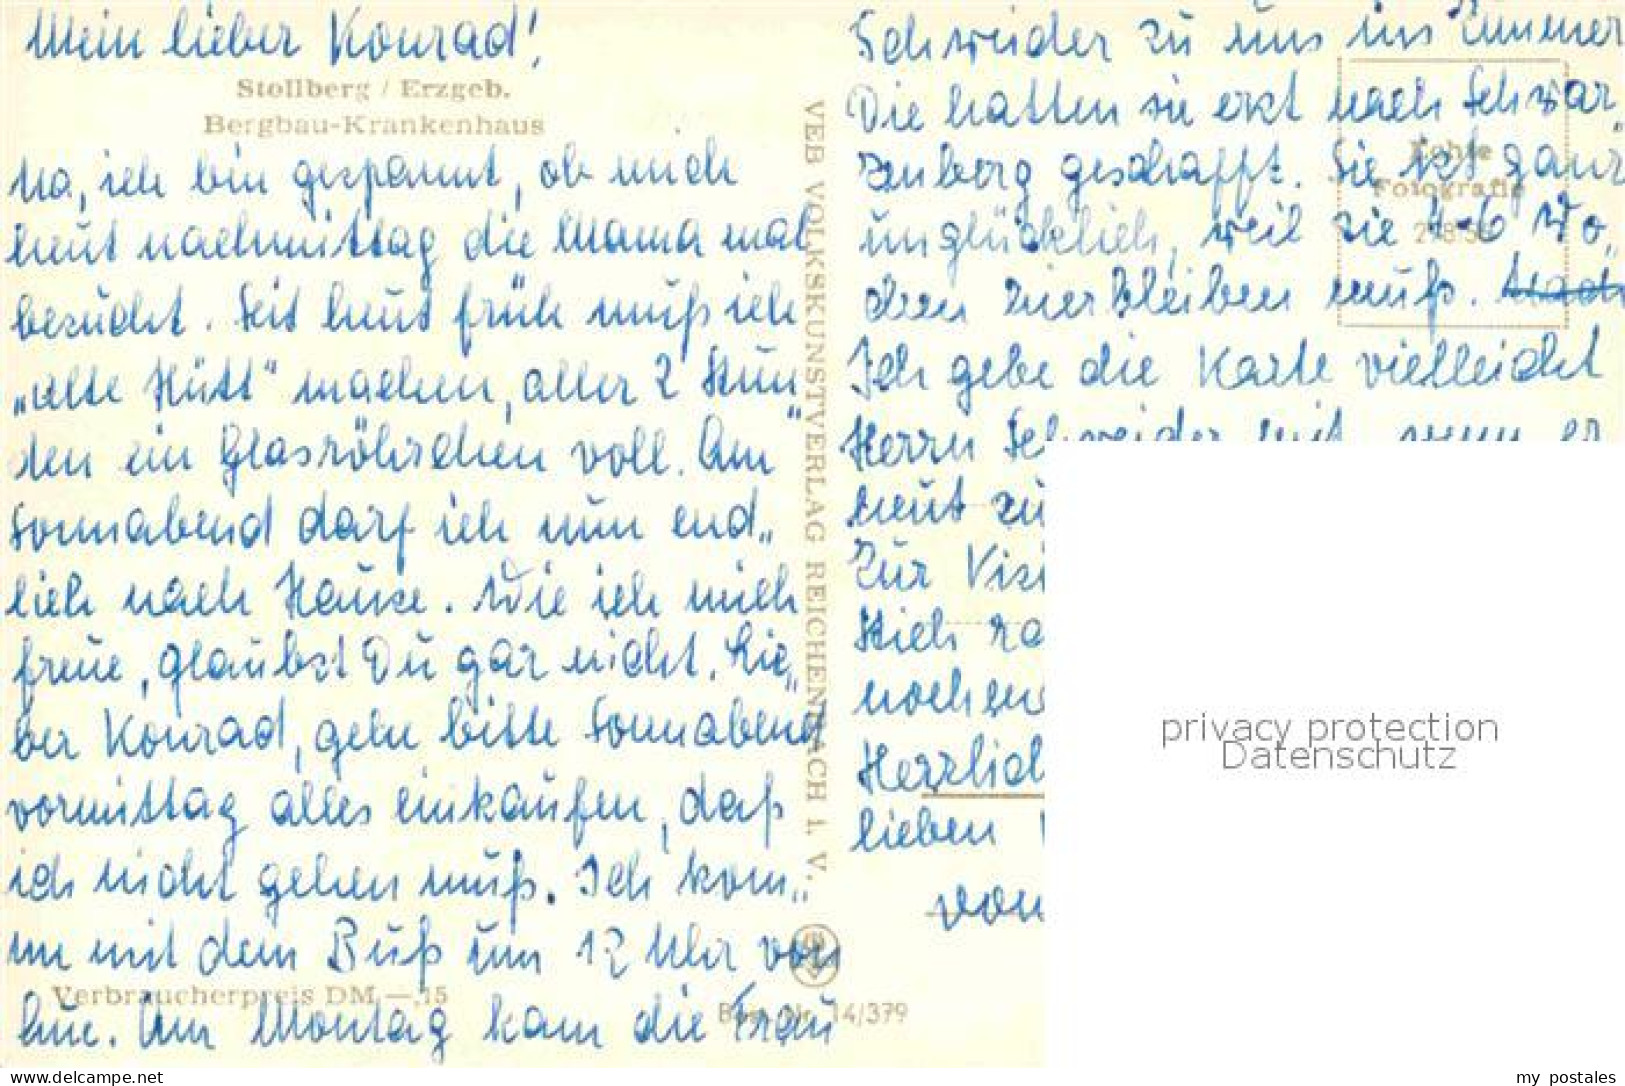 Mein lieber Konrad!
Stollberg / Erzgeb.
Bergbau-Krankenhaus
Na, ich bin gespannt, ob mich
heut nachmittag die Mama mal
besucht. Seit heut früh muß ich
"alte Hütt" machen, aller 2 Stun"
den ein Glasröhrchen voll. Am
Sonnabend darf ich nun end"
lich nach Hause. Wie ich mich
freue, glaubst Du gar nicht. Lie"
ber Konrad, gehe bitte Sonnabend
vormittag alles einkaufen, daß
ich nicht gehen muß. Ich kom"
me mit dem Buß um 12 Uhr von
hue. Am Montag kam die Frau
Verbraucherpreis DM —,15
Best.-Nr. 14/379
VEB VOLKSKUNSTVERLAG REICHENBACH i. V.
Schneider zu uns ins Zimmer
Die hatten sie erst nach Schwar"
zenberg geschafft. Sie ist ganz
unglücklich, weil sie 4-6 Wo"
chen hierbleiben muß.
Ich gebe die Karte vielleicht
Herrn Schneider mit, wenn er
heut zu
Zur Visi
noch
Herzlich
lieben
von
Echte
Fotografie
privacy protection
Datenschutz
www.delcampe.net
my_postales